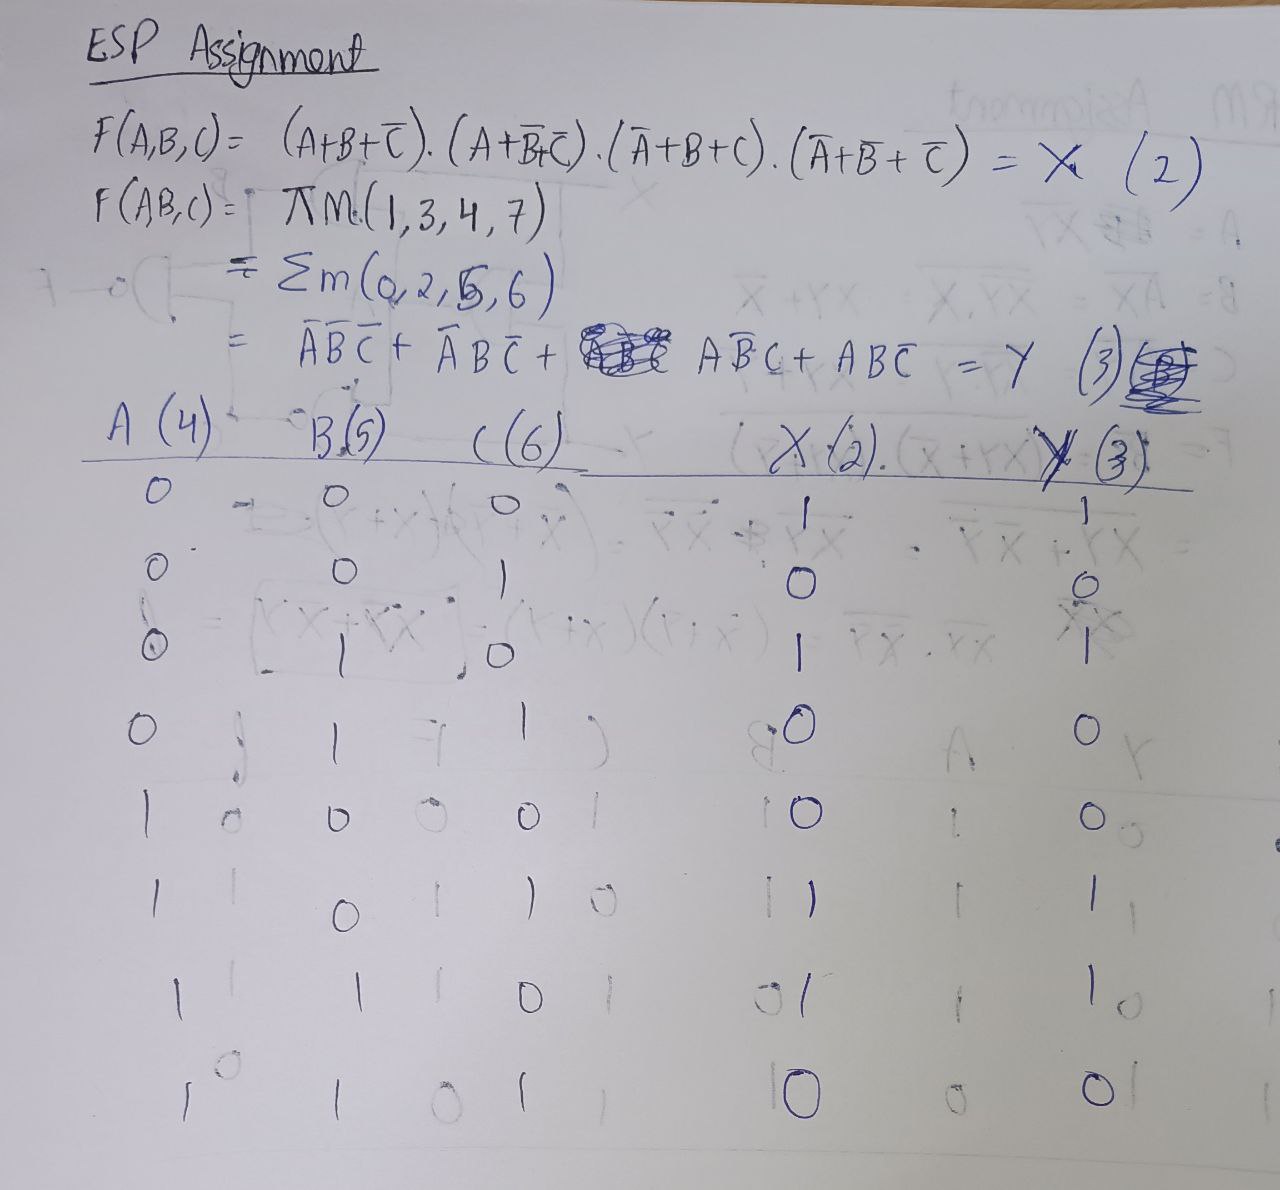 ESP Assignment
F(A,B,C) = (A+B+C̅).(A+B̅+C̅).(A̅+B+C).(A̅+B̅+C̅) = X (2)
F(A,B,C) = πM(1,3,4,7)
= Σm(0,2,5,6)
= A̅B̅C̅ + A̅BC̅ + AB̅C + ABC̅ = Y (3)
A (4) B(5) C(6) X(2). Y(3)
0 0 0 1 1
0 0 1 0 0
0 1 0 1 1
0 1 1 0 0
1 0 0 0 0
1 0 1 1 1
1 1 0 1 1
1 1 1 0 0